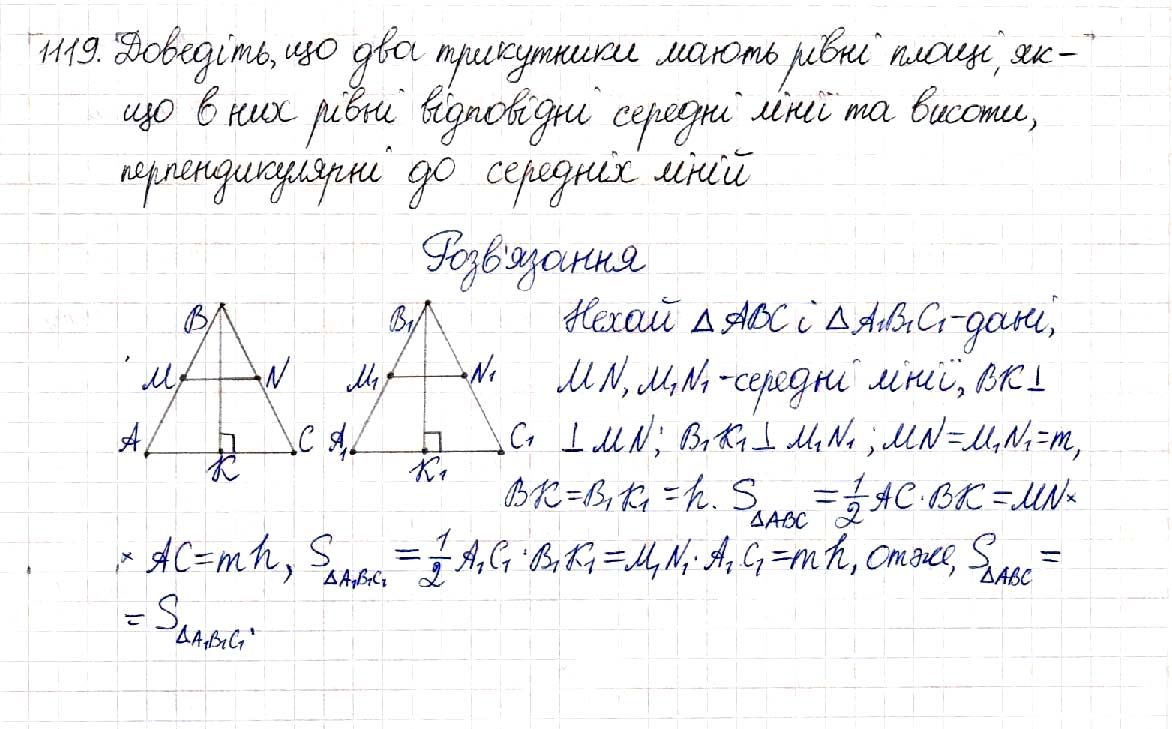 1119. Доведіть, що два трикутники мають рівні площі, як-
що в них рівні відповідні середні лінії та висоти,
перпендикулярні до середніх ліній
Розв'язання
B B₁ Нехай △ABC і △A₁B₁C₁-дані,
M N M₁ N₁ MN, M₁N₁-середні лінії, BK⊥
A K C A₁ K₁ C₁ ⊥MN; B₁K₁⊥M₁N₁; MN=M₁N₁=m,
BK=B₁K₁=h. S△ABC = 1/2 AC·BK=MN×
× AC=mh, S△A₁B₁C₁ = 1/2 A₁C₁·B₁K₁=M₁N₁·A₁C₁=mh, отже, S△ABC =
= S△A₁B₁C₁.